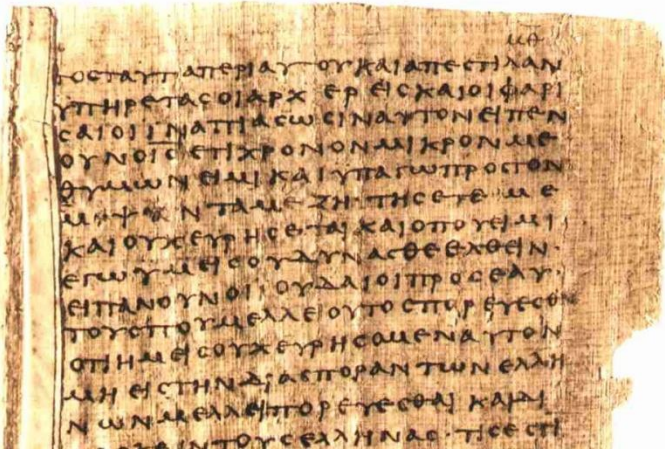 ΜΘ
ΤΟϹΤΑΥΤΑΠΕΡΙΑΥΤΟΥΚΑΙΑΠΕϹΤΙΛΑΝ
ΥΠΗΡΕΤΑϹΟΙΑΡΧΙΕΡΕΙϹΚΑΙΟΙΦΑΡΙ
ϹΑΙΟΙΙΝΑΠΙΑϹΩϹΙΝΑΥΤΟΝΕΙΠΕΝ
ΟΥΝΟΙ̅Ϲ̅ΕΤΙΧΡΟΝΟΝΜΙΚΡΟΝΜΕ
ΘΥΜΩΝΕΙΜΙΚΑΙΥΠΑΓΩΠΡΟϹΤΟΝ
ΠΕΜΨΑΝΤΑΜΕΖΗΤΗϹΕΤΕΜΕ
ΚΑΙΟΥΧΕΥΡΗϹΕΤΑΙΚΑΙΟΠΟΥΕΙΜΙ
ΕΓΩΥΜΕΙϹΟΥΔΥΝΑϹΘΕΕΛΘΕΙΝ·
ΕΙΠΑΝΟΥΝΟΙΙΟΥΔΑΙΟΙΠΡΟϹΕΑΥ
ΤΟΥϹΠΟΥΜΕΛΛΕΙΟΥΤΟϹΠΟΡΕΥΕϹΘΑΙ
ΟΤΙΗΜΕΙϹΟΥΧΕΥΡΗϹΟΜΕΝΑΥΤΟΝ
ΜΗΕΙϹΤΗΝΔΙΑϹΠΟΡΑΝΤΩΝΕΛΛΗ
ΝΩΝΜΕΛΛΕΙΠΟΡΕΥΕϹΘΑΙΚΑΙΔΙ
ΤΟΥϹΕΛΛΗΝΑϹ·ΤΙϹΕϹΤΙ